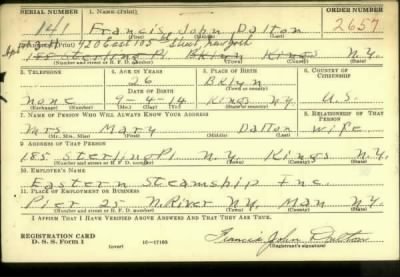 SERIAL NUMBER 1. NAME (Print) ORDER NUMBER
141 Francis John Dalton 2657
(First) (Middle) (Last)
2. ADDRESS (Print) 420 East 105 Street New York
185 Sterling Pl. Bklyn Kings N.Y.
(Number and street or R. F. D. number) (Town) (County) (State)
3. TELEPHONE 4. AGE IN YEARS 5. PLACE OF BIRTH 6. COUNTRY OF CITIZENSHIP
26 Bklyn
DATE OF BIRTH (Town or county)
None 9-4-14 Kings N.Y. U.S.
(Exchange) (Number) (Mo.) (Day) (Yr.) (State or country)
7. NAME OF PERSON WHO WILL ALWAYS KNOW YOUR ADDRESS 8. RELATIONSHIP OF THAT PERSON
Mrs Mary Dalton wife
(Mr., Mrs., Miss) (First) (Middle) (Last)
9. ADDRESS OF THAT PERSON
185 Sterling Pl N.Y. Kings N.Y.
(Number and street or R. F. D. number) (Town) (County) (State)
10. EMPLOYER'S NAME
Eastern Steamship Inc.
11. PLACE OF EMPLOYMENT OR BUSINESS
Pier 25 N. River N.Y. Man N.Y.
(Number and street or R. F. D. number) (Town) (County) (State)
I AFFIRM THAT I HAVE VERIFIED ABOVE ANSWERS AND THAT THEY ARE TRUE.
REGISTRATION CARD
D. S. S. Form 1 (over) 16—17105 Francis John Dalton
(Registrant's signature)